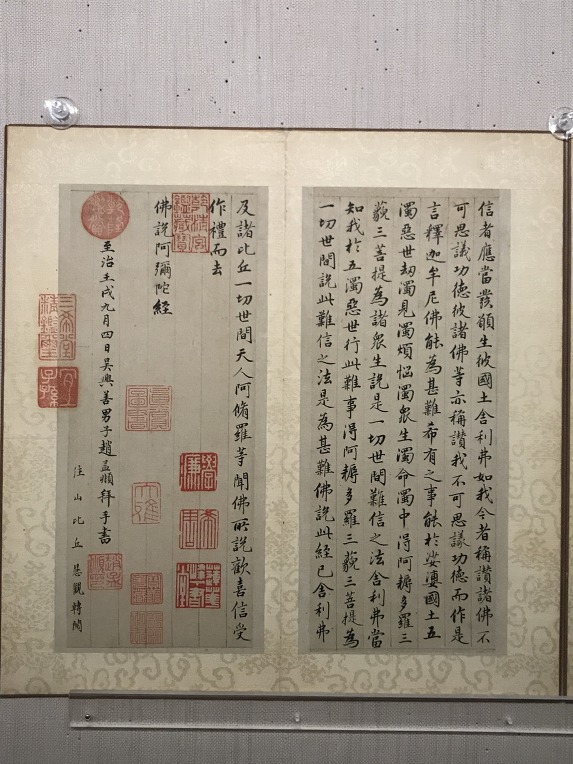 信者應當發願生彼國土舍利弗如我今者稱讚諸佛不
可思議功德彼諸佛等亦稱讚我不可思議功德而作是
言釋迦牟尼佛能為甚難希有之事能於娑婆國土五
濁惡世劫濁見濁煩惱濁眾生濁命濁中得阿耨多羅三
藐三菩提為諸眾生說是一切世間難信之法舍利弗當
知我於五濁惡世行此難事得阿耨多羅三藐三菩提為
一切世間說此難信之法是為甚難佛說此經已舍利弗
及諸比丘一切世間天人阿脩羅等聞佛所說歡喜信受
作禮而去
佛說阿彌陀經
至治壬戌九月四日吳興善男子趙孟頫拜手書
住山比丘 轉閱
乾清宮鑒藏寶
三希堂精鑑璽
宜子孫
趙孟頫印